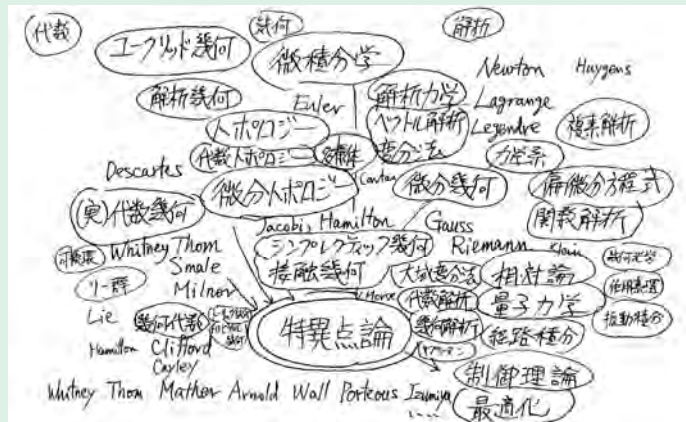 代数
幾何
解析
ユークリッド幾何
微積分学
Newton Huygens
解析幾何
Euler
解析力学
Lagrange
トポロジー
ベクトル解析
Legendre
複素解析
代数トポロジー
多様体
変分法
力学系
Descartes
微分トポロジー
Cartan
微分幾何
偏微分方程式
(実)代数幾何
関数解析
Jacobi, Hamilton
Gauss
可換環
Whitney Thom
シンプレクティック幾何
Riemann
Klein
幾何光学
Smale
接触幾何
大域変分法
相対論
リー群
Milnor
Morse
代数解析
量子力学
振動積分
Lie
幾何代数
特異点論
幾何解析
経路積分
Hamilton
Clifford
Cayley
制御理論
Whitney Thom Mather Arnold Wall Porteous Izumiya
....
最適化